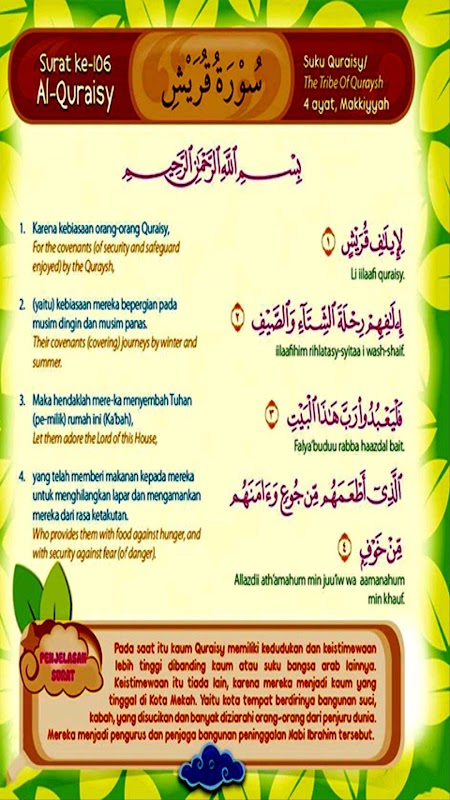 Surat ke-106
Al-Quraisy
سُوْرَةُ قُرَيْشٍ
Suku Quraisy/
The Tribe Of Quraysh
4 ayat, Makkiyyah
بِسْمِ اللَّهِ الرَّحْمَٰنِ الرَّحِيمِ
1. Karena kebiasaan orang-orang Quraisy,
For the covenants (of security and safeguard
enjoyed) by the Quraysh,
لِإِيلَٰفِ قُرَيْشٍ ١
Li iilaafi quraisy.
2. (yaitu) kebiasaan mereka bepergian pada
musim dingin dan musim panas.
Their covenants (covering) journeys by winter and
summer.
إِۦلَٰفِهِمْ رِحْلَةَ ٱلشِّتَآءِ وَٱلصَّيْفِ ٢
iilaafihim rihlatasy-syitaa i wash-shaif.
3. Maka hendaklah mere-ka menyembah Tuhan
(pe-milik) rumah ini (Ka'bah),
Let them adore the Lord of this House,
فَلْيَعْبُدُوا۟ رَبَّ هَٰذَا ٱلْبَيْتِ ٣
Falya'buduu rabba haazdal bait.
4. yang telah memberi makanan kepada mereka
untuk menghilangkan lapar dan mengamankan
mereka dari rasa ketakutan.
Who provides them with food against hunger, and
with security against fear (of danger).
ٱلَّذِىٓ أَطْعَمَهُم مِّن جُوعٍ وَءَامَنَهُم
مِّنْ خَوْفٍۭ ٤
Allazdii ath'amahum min juu'iw wa aamanahum
min khauf.
PENJELASAN
SURAT
Pada saat itu kaum Quraisy memiliki kedudukan dan keistimewaan
lebih tinggi dibanding kaum atau suku bangsa arab lainnya.
Keistimewaan itu tiada lain, karena mereka menjadi kaum yang
tinggal di Kota Mekah. Yaitu kota tempat berdirinya bangunan suci,
kabah, yang disucikan dan banyak diziarahi orang-orang dari penjuru dunia.
Mereka menjadi pengurus dan penjaga bangunan peninggalan Nabi Ibrahim tersebut.